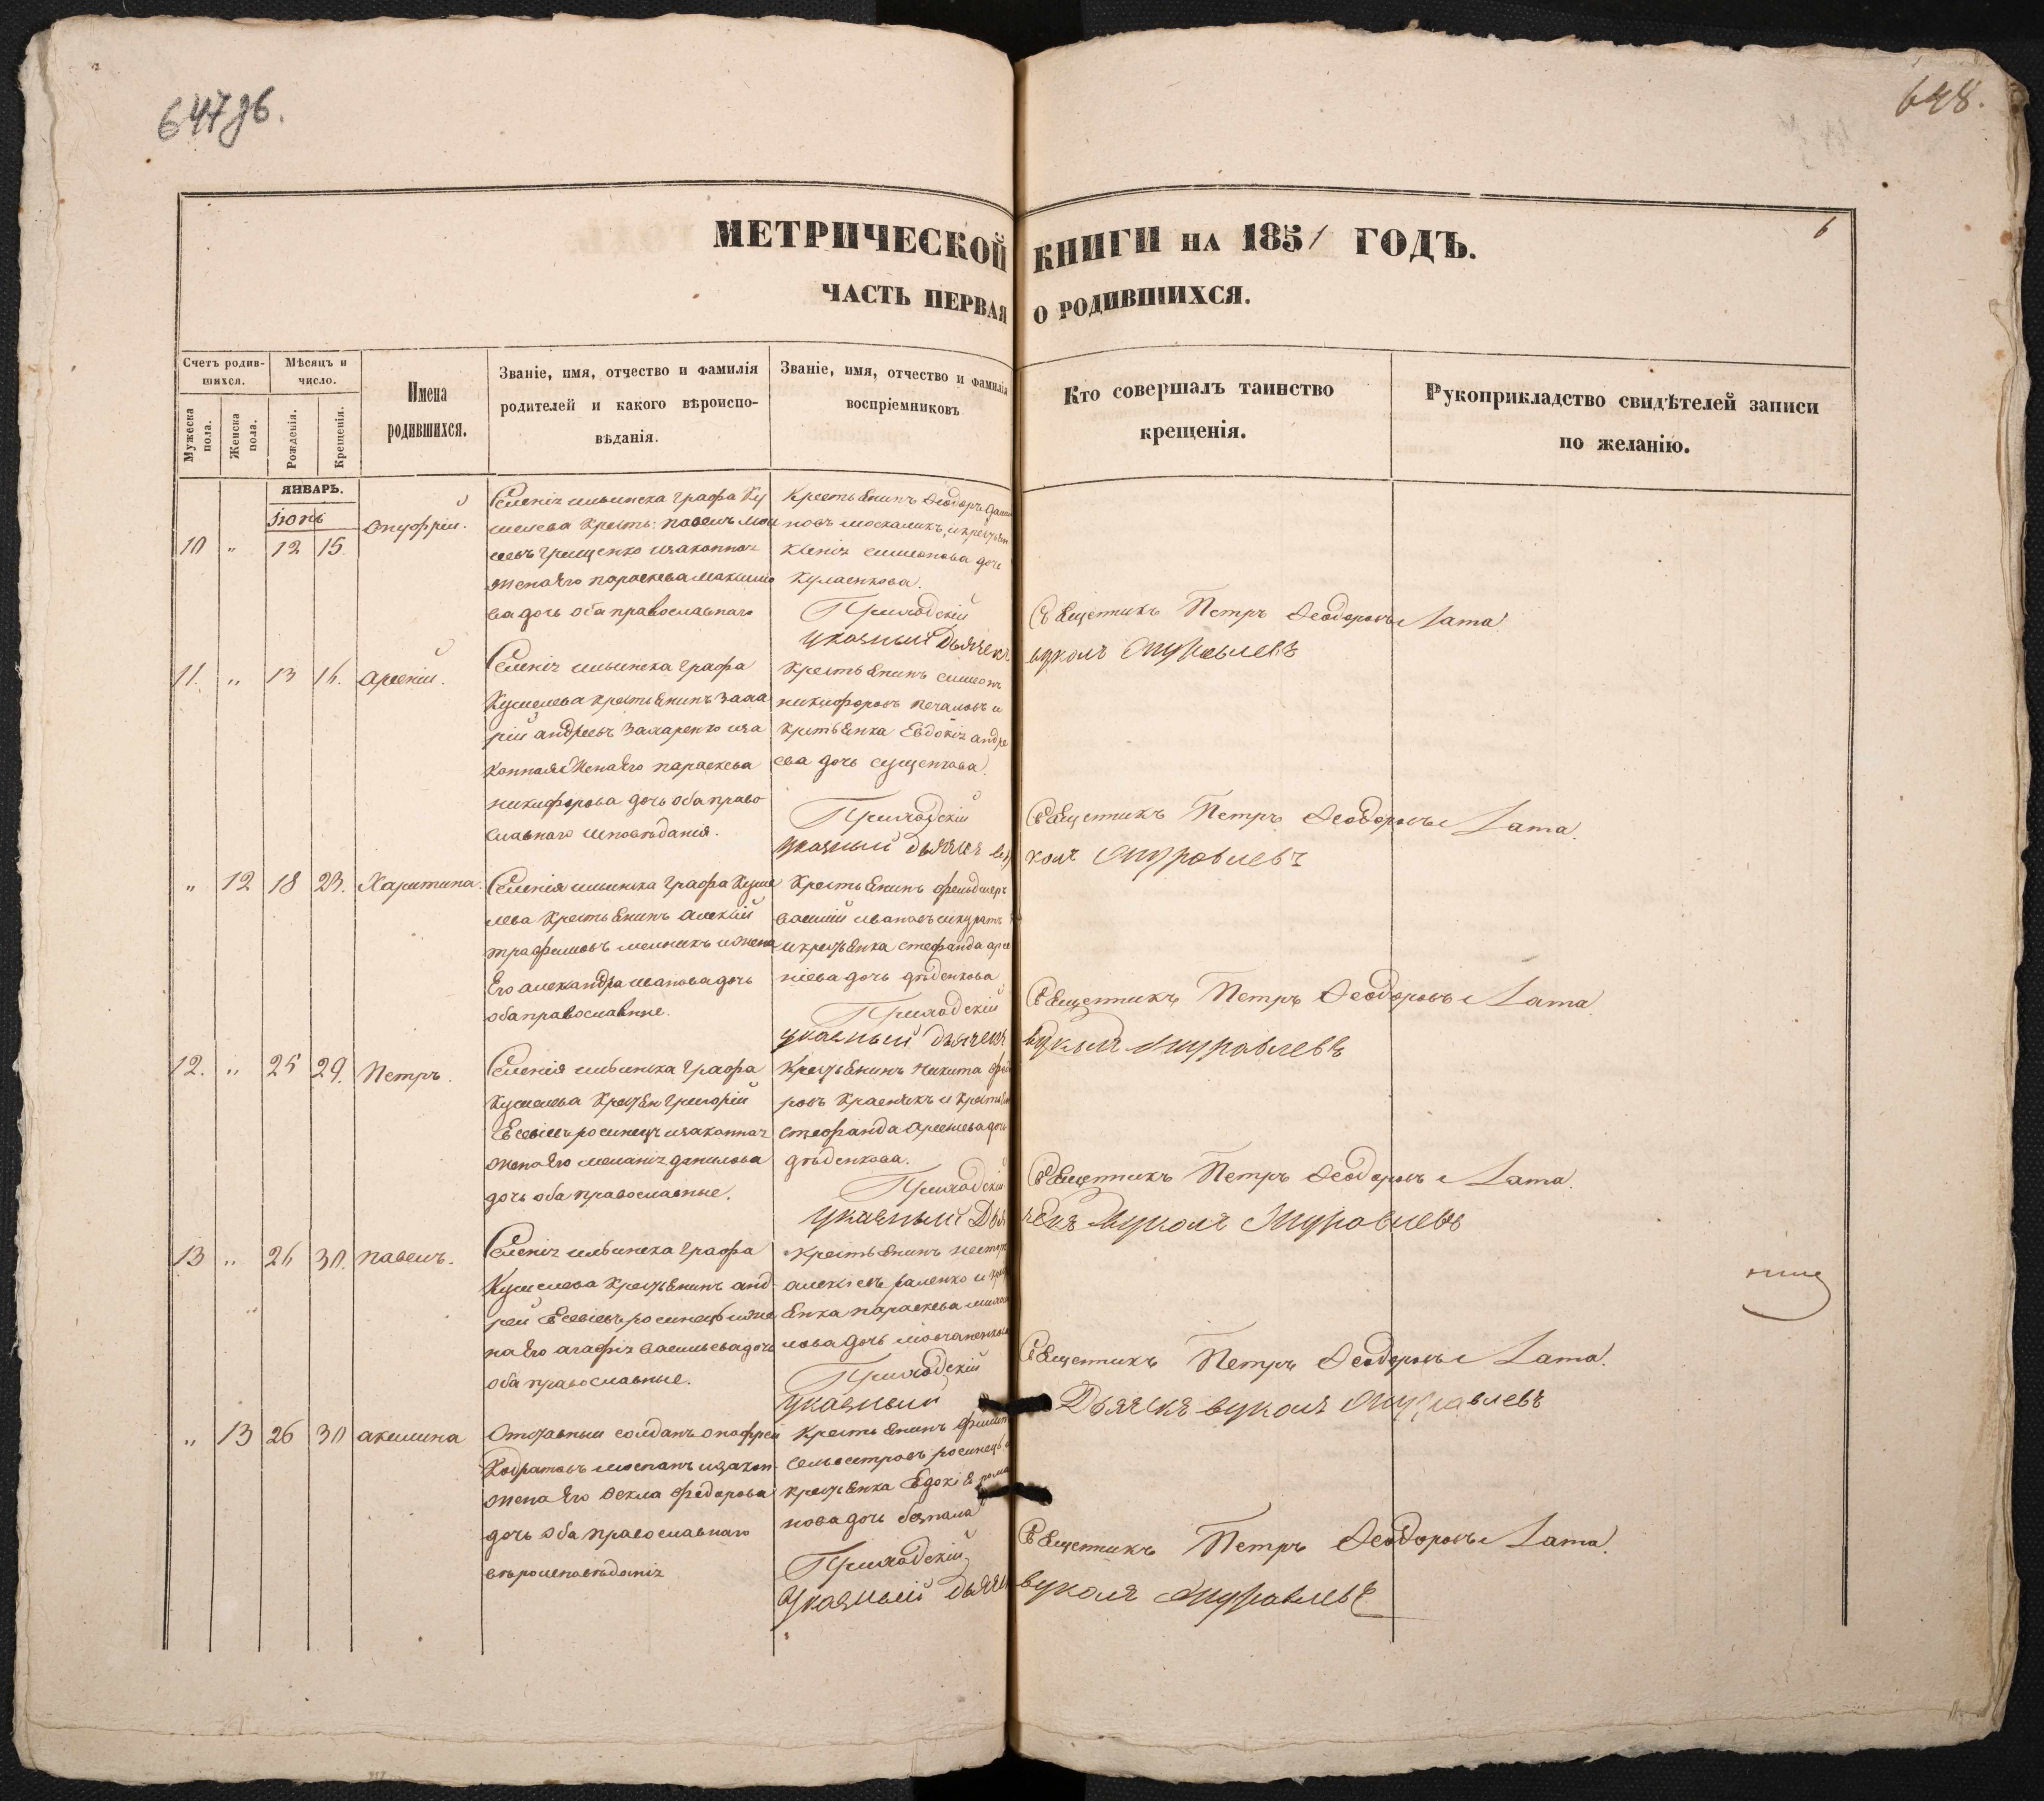 647 об.
648.
6
МЕТРИЧЕСКОЙ КНИГИ НА 1851 ГОДЪ.
ЧАСТЬ ПЕРВАЯ О РОДИВШИХСЯ.
Счетъ родив-
шихся.
Мужеска пола.
Женска пола.
Мѣсяцъ и
число.
Рожденія.
Крещенія.
Имена
родившихся.
Званіе, имя, отчество и фамилія
родителей и какого вѣроиспо-
вѣданія.
Званіе, имя, отчество и фамилія
воспріемниковъ
Кто совершалъ таинство
крещенія.
Рукоприкладство свидѣтелей записи
по желанію.
ЯНВАРЬ.
Іюнь
10 " 12 15. Онуфрій.
Селенія ильинска графа Ку
шелева крестъ: павелъ мои
сеевъ грищенко изаконная
жена Его параскева максимо
ва дочь оба православнаго
Крестьенинъ Ѳеодоръ
новъ москаликъ,
Ксенія симеонова дочь
Кулаенкова.
Приходскій
Священникъ Петръ Ѳеодоровъ Лата
указный Дьячекъ вуколъ Журавлевъ
11. " 13 16. Арсеній.
Селенія ильинска графа
Кушелева крестьенинъ Заха
рій андреевъ Захаренко иза
конная Жена Его параскева
никифорова дочь оба право
славнаго исповѣданія.
Крестьенинъ симеонъ
никифоровъ печаловъ и
Крестьенка Евдокія андре
ева дочь сущенкова.
Приходскій
Священникъ Петръ Ѳеодоровъ Лата.
указный дьячекъ ву колъ Журавлевъ
" 12 18 23. Харитина.
Селенія ильинска графа Куше
лева Крестьенинъ Алексій
трофимовъ мельникъ ижена
Его александра иванова дочь
оба православные.
Крестьенинъ фельдшеръ
василій ивановъ
икрестьенка стефанида арсе
ніева дочь дѣденкова
Приходскій
Священникъ Петръ Ѳеодоровъ Лата.
указный дьячекъ вуколъ Журавлевъ
12. " 25 29. Петръ.
Селенія ильинска графа
Кушелева Крестьен григорій
Евсевіевъ росинецъ изаконная
жена Его меланія данилова
дочь оба православные.
Крестьенинъ Никита
ровъ Красникъ и
стефанида Арсеніева дочь
дѣденкова.
Приходскій
Священникъ Петръ Ѳеодоровъ Лата.
указный Дья чекъ Вуколъ Журавлевъ
13 " 26 30. павелъ.
Селенія ильинска графа
Кушелева Крестьенинъ анд
рей Евсевіевъ росинецъ ижe
на Его агафія васильева дочь
оба православные.
Крестьенинъ несторъ
алексіевъ раленко и
Енка параскева
лова дочь мовчаненкова
Приходскій
Священникъ Петръ Ѳеодоровъ Лата.
указный Дьячекъ вуколъ Журавлевъ
" 13 26 30 акилина
Отставный солдатъ онофрей
Кодратовъ изакон
жена Его Ѳекла Федорова
дочь оба православнаго
вѣроисповѣданія
Крестьенинъ
сельвестровъ росинецъ
крестьенка Евдокіе рома
нова дочь
Приходскій
Священникъ Петръ Ѳеодоровъ Лата.
указный дьячекъ вуколъ Журавлевъ